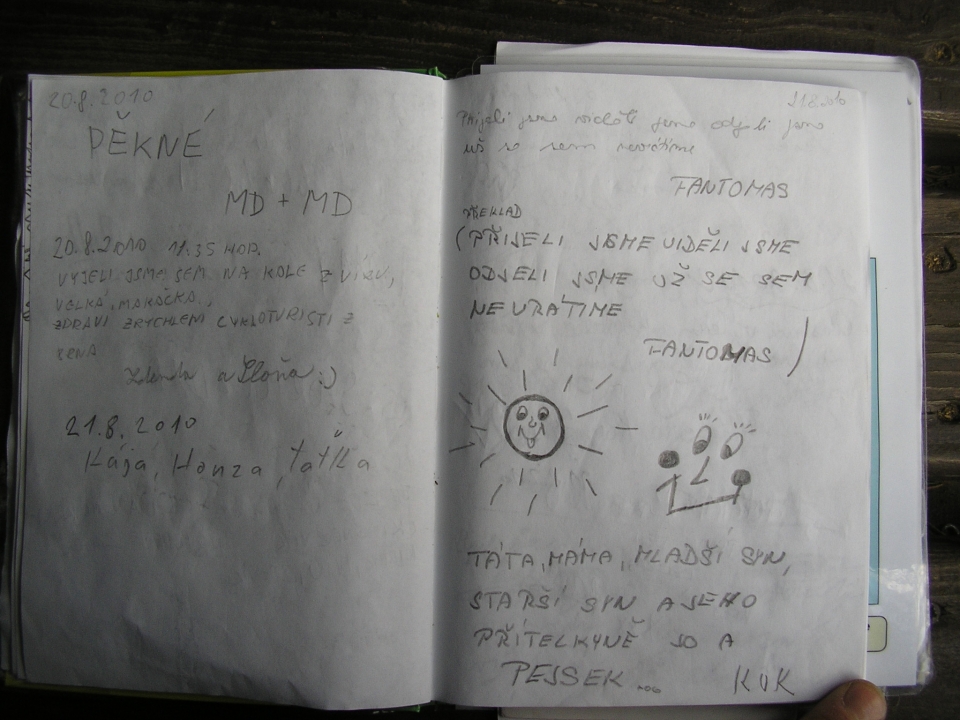 20.8.2010
PĚKNÉ
MD + MD
20.8.2010 11.35 HOD.
VYJELI JSME SEM NA KOLE Z
VELKÁ, MAKAČKA.,
ZDRAVÍ ZRYCHLENÍ CYKLOTURISTI Z
Zdenda a :)
21.8.2010
Kája, Honza, taťka
21.8.2010
Přijeli jsme viděli jsme odjeli jsme
už se sem nevrátíme
FANTOMAS
PŘEKLAD
(PŘIJELI JSME VIDĚLI JSME
ODJELI JSME UŽ SE SEM
NEVRÁTIME
FANTOMAS )
TÁTA, MÁMA, MLADŠÍ SYN,
STARŠÍ SYN A JEHO
PŘÍTELKYNĚ JO A
PEJSEK ... KUK